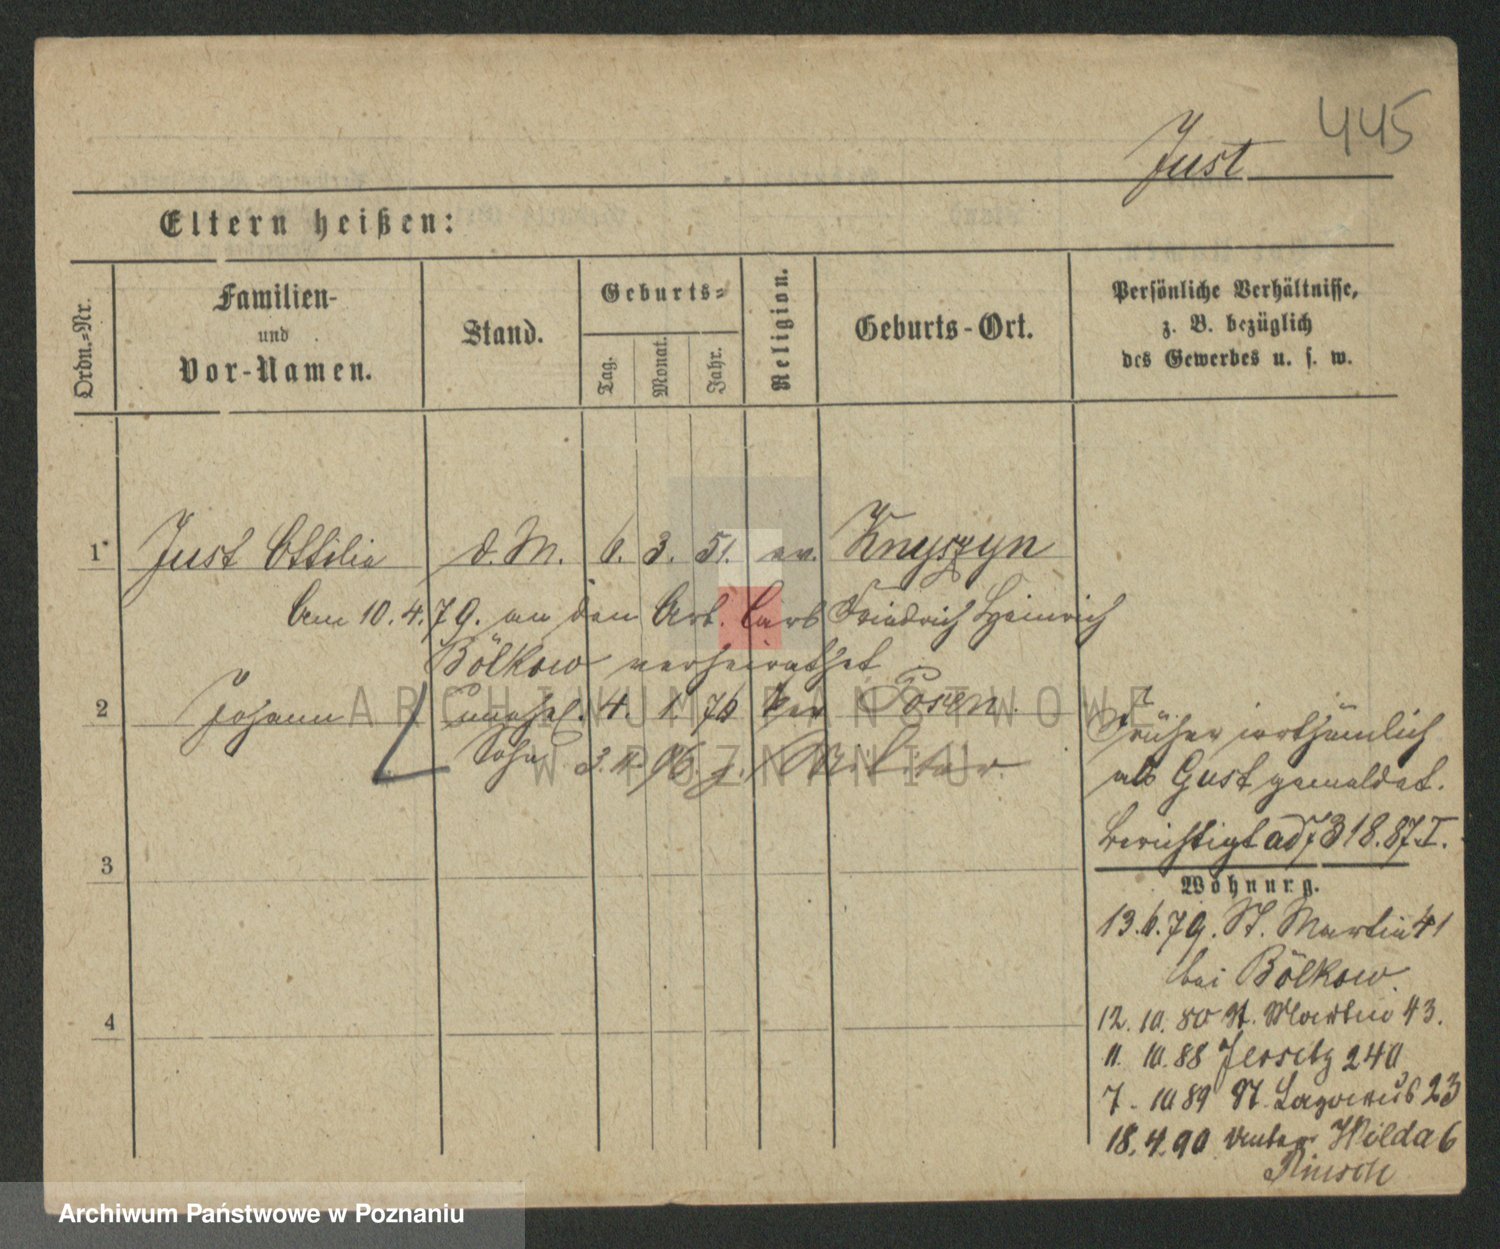 445
Just
Eltern heißen:
Ordn.-Nr.
Familien-
und
Vor-Namen.
Stand.
Geburts-
Tag.
Monat.
Jahr.
Religion.
Geburts-Ort.
Persönliche Verhältnisse,
z. B. bezüglich
des Gewerbes u. s. w.
1 Just Ottilie d. M. 6. 3. 51. ev. Knyszyn
Am 10.4.79. an den Arb. Carl Friedrich Heinrich
Bölkow verheirathet
2 Johann unehel. 4. 1. 76 Posen.
Sohn 3. 11. 96. z. Militär.
Früher irrthümlich
als Gust gemeldet.
berichtigt ad 318.87.I.
3
Wohnung.
13.6.79. St. Martin 41
bei Bölkow.
4
12. 10. 80 St. Martin 43.
11. 10. 88 Jersitz 240
7. 10 89 St. Lazarus 23
18. 4. 90 Unter Wilda 6
ARCHIWUM PAŃSTWOWE
W POZNANIU
Archiwum Państwowe w Poznaniu